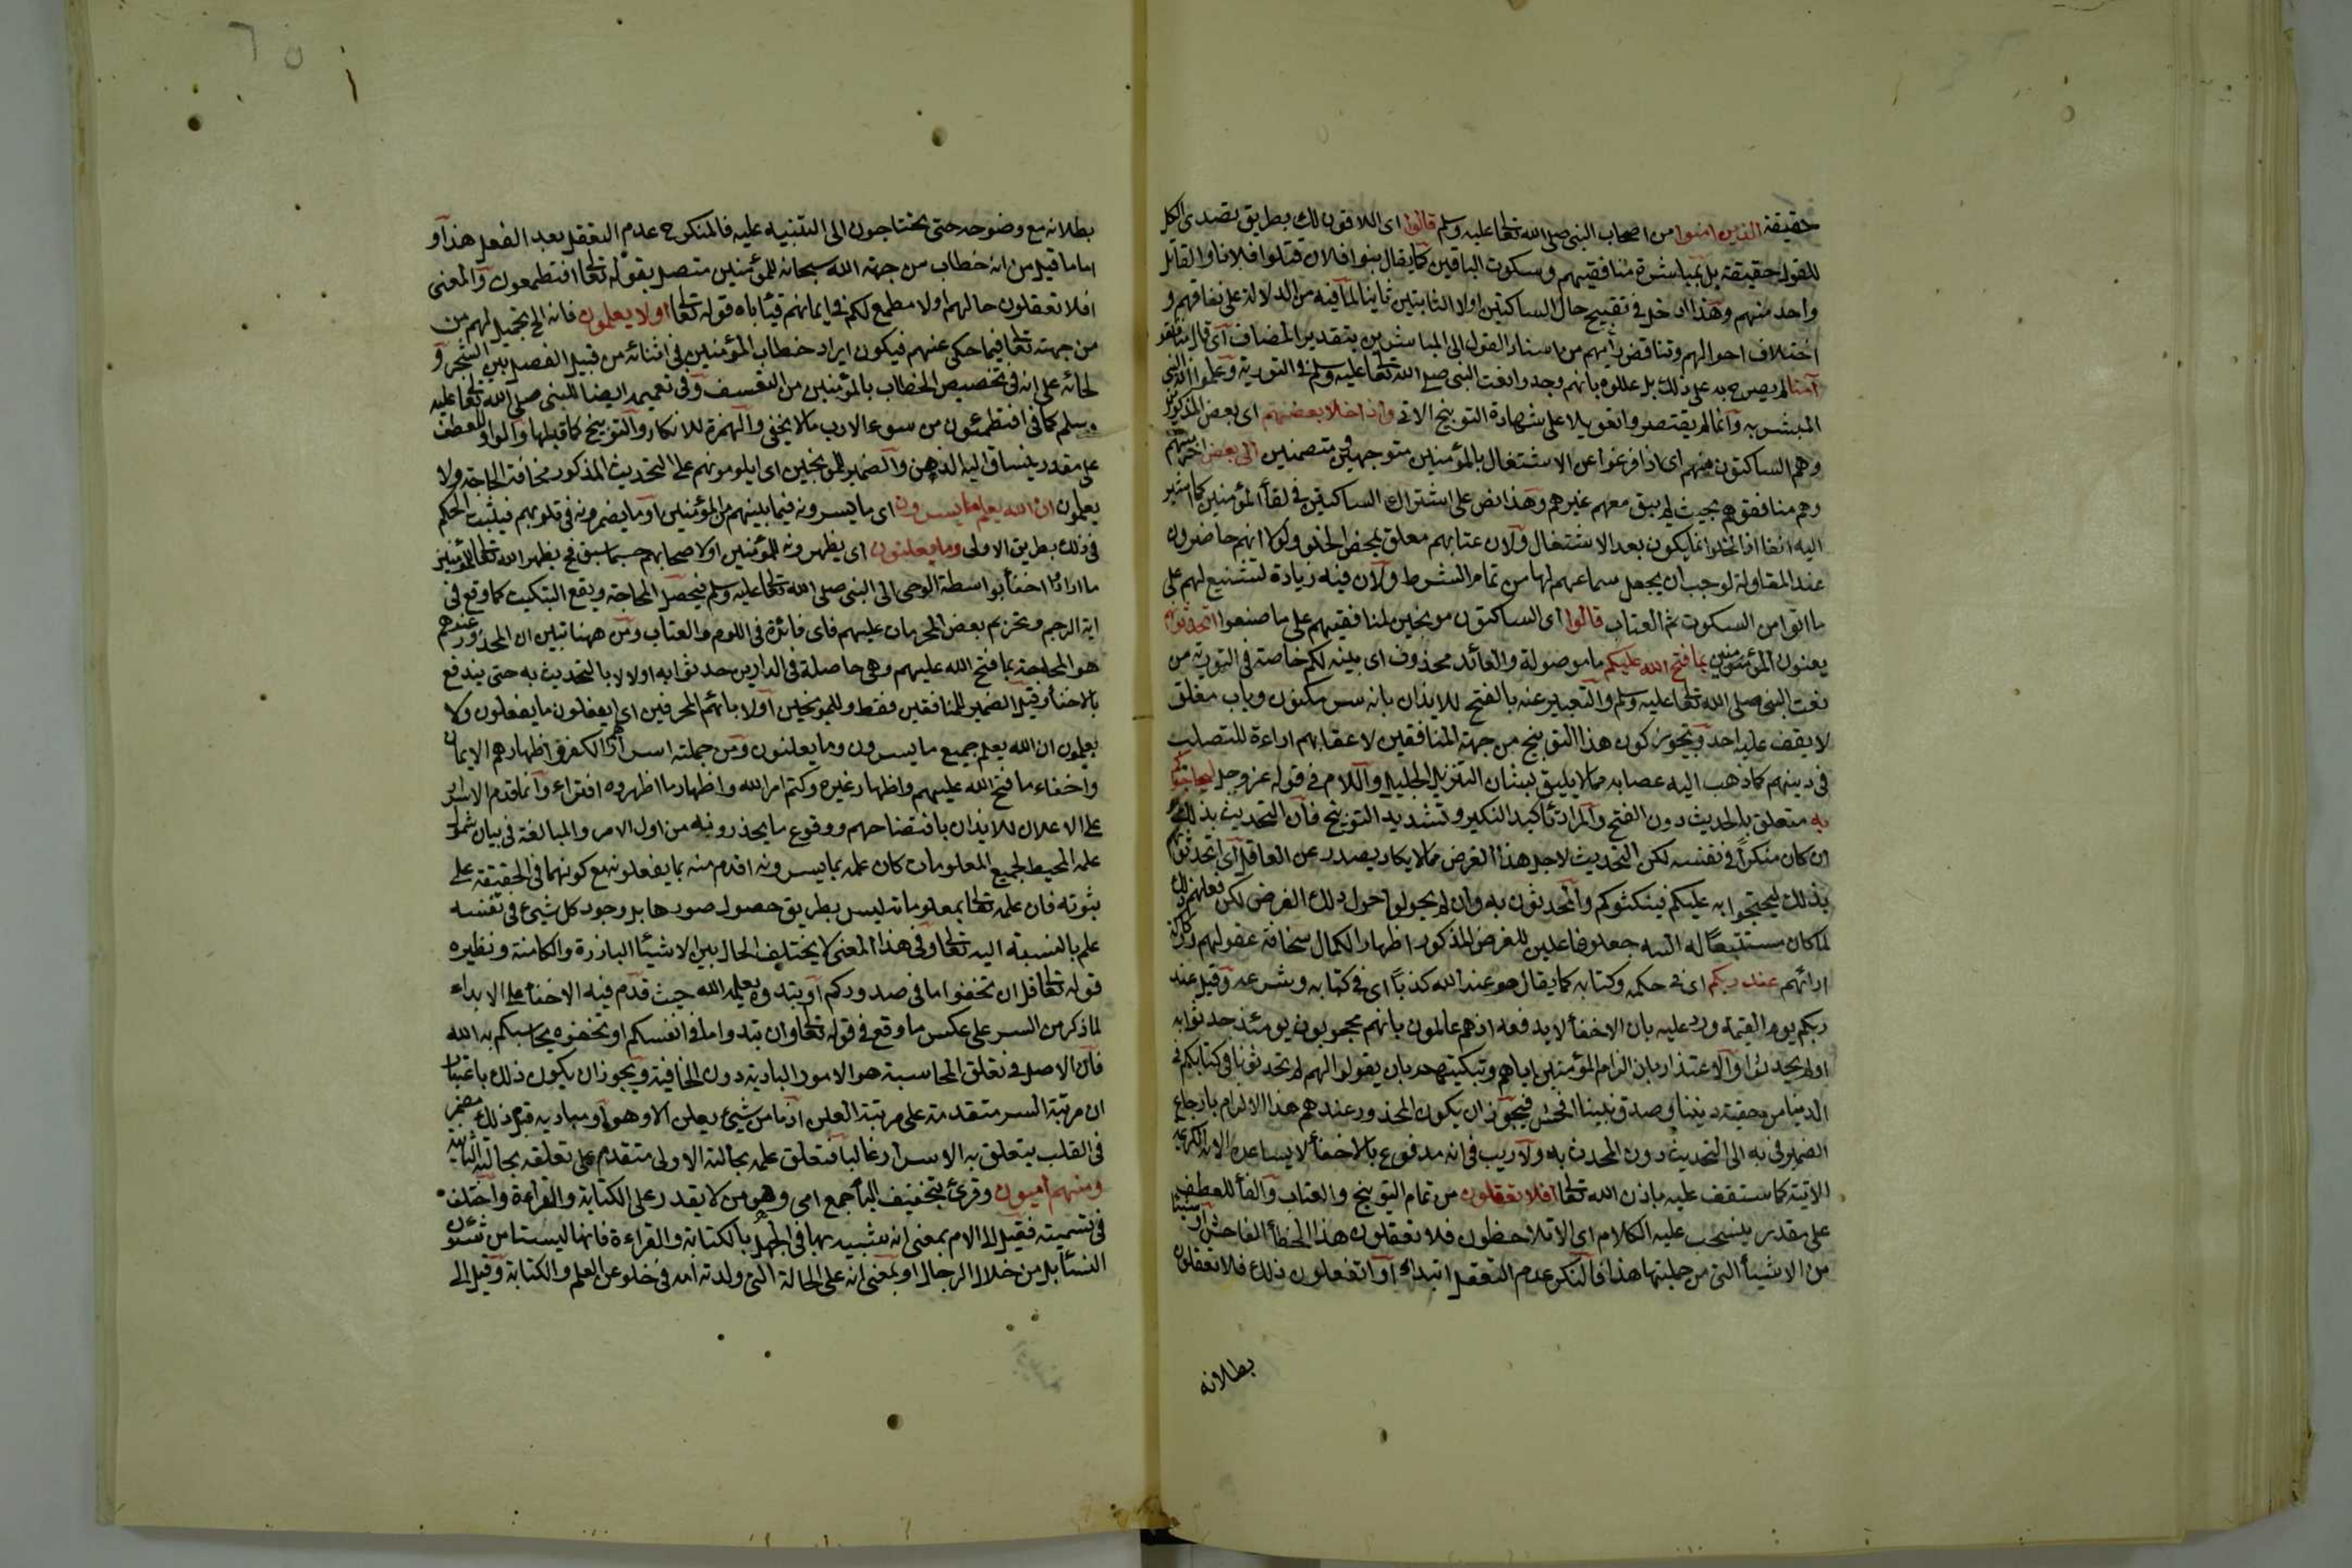 حقيقة الذين امنوا من اصحاب النبى صلى الله تعالى عليه وسلم قالوا اى اللاقون لكن بطريق تصدى الكل
للقول حقيقة بل بمباشرة منافقيهم وسكوت الباقين كما يقال بنوا فلان قتلوا فلانا والقاتل
واحد منهم وهذا ادخل في تقبيح حال الساكتين اولا الثابتين ثانيا لما فيه من الدلالة على نفاقهم و
اختلاف احوالهم وتناقض رايهم من اسناد القول الى المباشرين بتقدير المضاف اى قال منافقو
آمنا لم يصرح به على ذلك بل عللوه بانهم وجدوا نعت النبى صلى الله تعالى عليه وسلم فى التورية وعلموا انه النبى
المبشر به وانما لم يقتصروا تعويلا على شهادة التوبيخ الاتى واذا خلا بعضهم اى بعض المذكورين
وهم الساكتون منهم اى اذا فرغوا عن الاشتغال بالمؤمنين متوجهين ومتصمنين الى بعض آخر منهم
وهم منافقوهم بحيث لم يبق معهم غيرهم وهذا نص على اشتراك الساكتين فى لقاء المؤمنين كما اشير
اليه انفا اذ الخلو انما يكون بعد الاشتغال ولان عتابهم معلق بمحض الخلو ولولا انهم حاضرون
عند المقاولة لوجب ان يجعل سماعهم لها من تمام الشرط ولان فيه زيادة لتشنيع لهم على
ما اتوا من السكوت ثم العتاب قالوا اى الساكتون موبخين لمنافقيهم على ما صنعوا اتحدثونهم
يعنون المؤمنين بما فتح الله عليكم ما موصولة والعائد محذوف اى بينه لكم خاصة فى التورية من
نعت النبى صلى الله تعالى عليه وسلم والتعبير عنه بالفتح للايذان بانه سر مكنون وباب مغلق
لا يقف عليه احد وتجويز كون هذا التوبيخ من جهة المنافقين لاعقابهم اراءة للتصلب
فى دينهم كما ذهب اليه عصابه مما لا يليق بشان التنزيل الجليل واللام فى قوله عز وجل ليحاجوكم
به متعلق بالحديث دون الفتح والمراد تأكيد النكير وتشديد التوبيخ فان التحديث بذلك و
ان كان منكرا فى نفسه لكن التحديث لاجل هذا الغرض مما لا يكاد يصدر عن العاقل اى اتحدثونهم
بذلك ليحتجوا به عليكم فيبكتوكم والمحدثون به وان لم يحولوا حول ذلك الغرض لكن فعلهم ذلك
لما كان مستتبعا له البتة جعلوا فاعلين للغرض المذكور اظهارا لكمال سخافة عقولهم وركاكة
ارائهم عند ربكم اى فى حكمه وكتابه كما يقال هو عند الله كذا اى فى كتابه وشرعه وقيل عند
ربكم يوم القيمة ورد عليه بان الاخفاء لا يدفعه اذهم عالمون بانهم محجوبون يومئذ حدثوا به
او لم يحدثوا والاعتذار بان الزام المؤمنين اياهم وتبكيتهم بان يقولوا الهم لم تحدثونا فى كتابكم فى
الدنيا من حقية ديننا وصدق نبينا الحش فيجوز ان يكون المحذور عندهم هذا الالزام بارجاع
الضمير فى به الى التحديث دون المحدث به ولا ريب فى انه مدفوع بالاخفاء لا يساعده الاية الكريمة
الاتية كما ستقف عليه باذن الله تعالى افلا تعقلون من تمام التوبيخ والعتاب والفاء للعطف
على مقدر ينسحب عليه الكلام اى الا تلاحظون فلا تعقلون هذا الخطأ الفاحش او شيئا
من الاشياء التى من جملتها هذا فالمنكر عدم التعقل ابتداء او اتفعلون ذلك فلا تعقلون
بطلانه
بطلانه مع وضوحه حتى تحتاجون الى التنبيه عليه فالمنكر ح عدم التعقل بعد الفعل هذا و
اما ما قيل من انه خطاب من جهة الله سبحانه للمؤمنين متصل بقوله تعالى افتطمعون والمعنى
افلا تعقلون حالهم اولا مطمع لكم فى ايمانهم فيأباه قوله تعالى اولا يعلمون فانه الى تجهيل لهم من
من جهته تعالى فيما حكى عنهم فيكون ايراد خطاب المؤمنين فى اثنائه من قبيل الفصل بين الشجر و
لحائه على انه فى تخصيص الخطاب بالمؤمنين من التعسف وفى تعميمه ايضا للنبى صلى الله تعالى عليه
وسلم كما فى افتطمعون من سوء الادب ما لا يخفى والهمزة للانكار والتوبيخ كما قبلها والواو للعطف
على مقدر ينساق اليه الذهن والضمير للموبخين اى ايلومونهم على التحديث المذكور مخافة المحاجة ولا
يعلمون ان الله يعلم ما يسرون اى ما يسرونه فيما بينهم من المؤمنين او ما يضمرونه فى قلوبهم فيثبت الحكم
فى ذلك بطريق الاولى وما يعلنون اى يظهرونه للمؤمنين او لاصحابهم حسبما سبق فح يظهر الله تعالى للمؤمنين
ما ارادوا اخفاءه بواسطة الوحى الى النبى صلى الله تعالى عليه وسلم فيحصل المحاجة ويقع التبكيت كما وقع فى
اية الرجم وتحريم بعض المحرمات عليهم فاى فائدة فى اللوم والعتاب ومن ههنا تبين ان المحذور عندهم
هو المحاجة بما فتح الله عليهم وهى حاصلة فى الدارين حدثوا به اولا لا بالتحديث به حتى يندفع
بالاخفاء وقيل الضمير للمنافقين فقط وللموبخين اولا بائهم المحرفين اى ايفعلون ما يفعلون ولا
يعلمون ان الله يعلم جميع ما يسرون وما يعلنون ومن جملته اسرارهم الكفر واظهارهم الايمان
واخفاء ما فتح الله عليهم واظهار غيره وكتم امر الله واظهار ما اظهروه افتراء وانما قدم الاسرار
على الاعلان للايذان بافتضاحهم ووقوع ما يحذرونه من اول الامر والمبالغة فى بيان شمول
علمه المحيط لجميع المعلومات كان علمه بما يسرونه اقدم منه بما يفعلونه مع كونهما فى الحقيقة على
ثبوته فان علمه تعالى بمعلوماته ليس بطريق حصول صورها بل وجود كل شيئ فى نفسه
علم بالنسبة اليه تعالى وفى هذا المعنى لا يختلف الحال بين الاشياء البارزة والكامنة ونظيره
قوله تعالى قل ان تخفوا ما فى صدوركم او تبدوه يعلمه الله حيث قدم فيه الاخفاء على الابداء
لما ذكر من السر على عكس ما وقع فى قوله تعالى وان تبدوا ما فى انفسكم او تخفوه يحاسبكم به الله
فان الاصل فى تعلق المحاسبة هو الامور البادية دون الخافية ويجوز ان يكون ذلك باعتبار
ان مرتبة السر متقدمة على مرتبة العلن اذ ما من شيئ يعلن الا وهو او مباديه قبل ذلك مضمر
فى القلب يتعلق به الاسرار غالبا فتعلق علمه بحالته الاولى متقدم على تعلقه بحالته الثانية
ومنهم اميون وقرئ بتخفيف الياء جمع امى وهو من لا يقدر على الكتابة والقراءة واختلف
فى تسميته فقيل الى الام بمعنى انه شبيه بها فى الجهل بالكتابة والقراءة فانهما ليستا من شئون
النساء بل من خلال الرجال او بمعنى انه على الحالة التى ولدته امه فى خلو عن العلم والكتابة وقيل الى